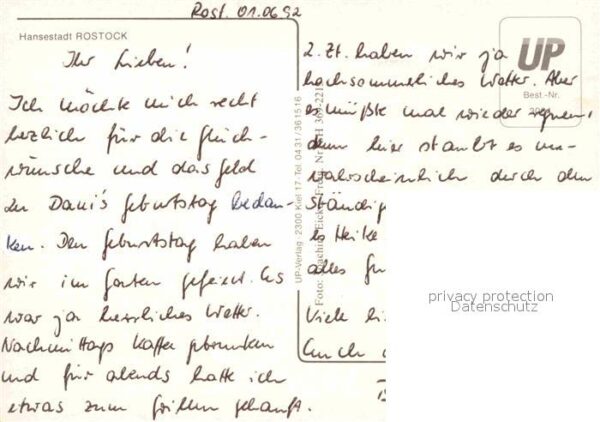 Rost. 01.06.92
Hansestadt ROSTOCK
Ihr Lieben!
Ich möchte mich recht
herzlich für die Glück-
wünsche und das Geld
zu Dani's Geburtstag bedan-
ken. Den Geburtstag haben
wir im Garten gefeiert. Es
war ja herrliches Wetter.
Nachmittags Kaffee getrunken
und für abends hatte ich
etwas zum Grillen gekauft.
UP-Verlag · 2300 Kiel 17 · Tel. 0431/361516
z. Zt. haben wir ja
hochsommerliches Wetter. Aber
es müßte mal wieder regnen,
denn hier staubt es un-
wahrscheinlich durch den
Ständig
es Heike
alles Gu
Viele li
Euch
UP
Best.-Nr.
privacy protection
Datenschutz